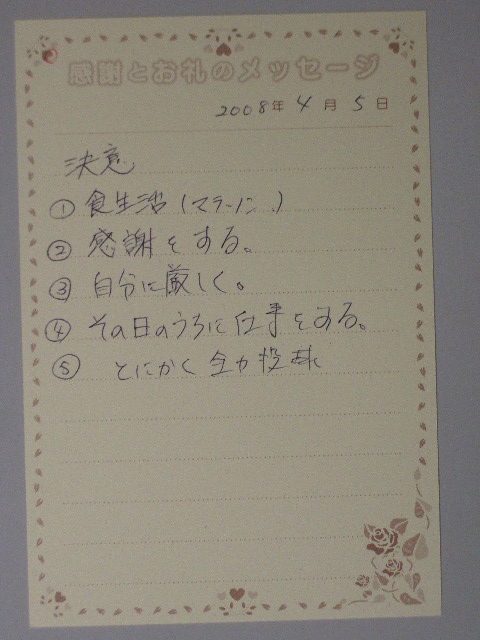 感謝とお礼のメッセージ
2008年 4月 5日
決意
① 食生活(マラーノン)
② 感謝をする。
③ 自分に厳しく。
④ その日のうちに仕事をする。
⑤ とにかく全力投球